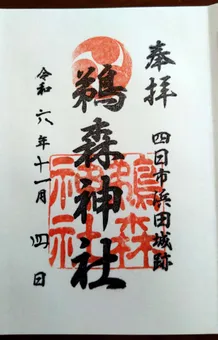 奉拝
四日市浜田城跡
鵜森神社
令和六年十一月四日
鵜森神社